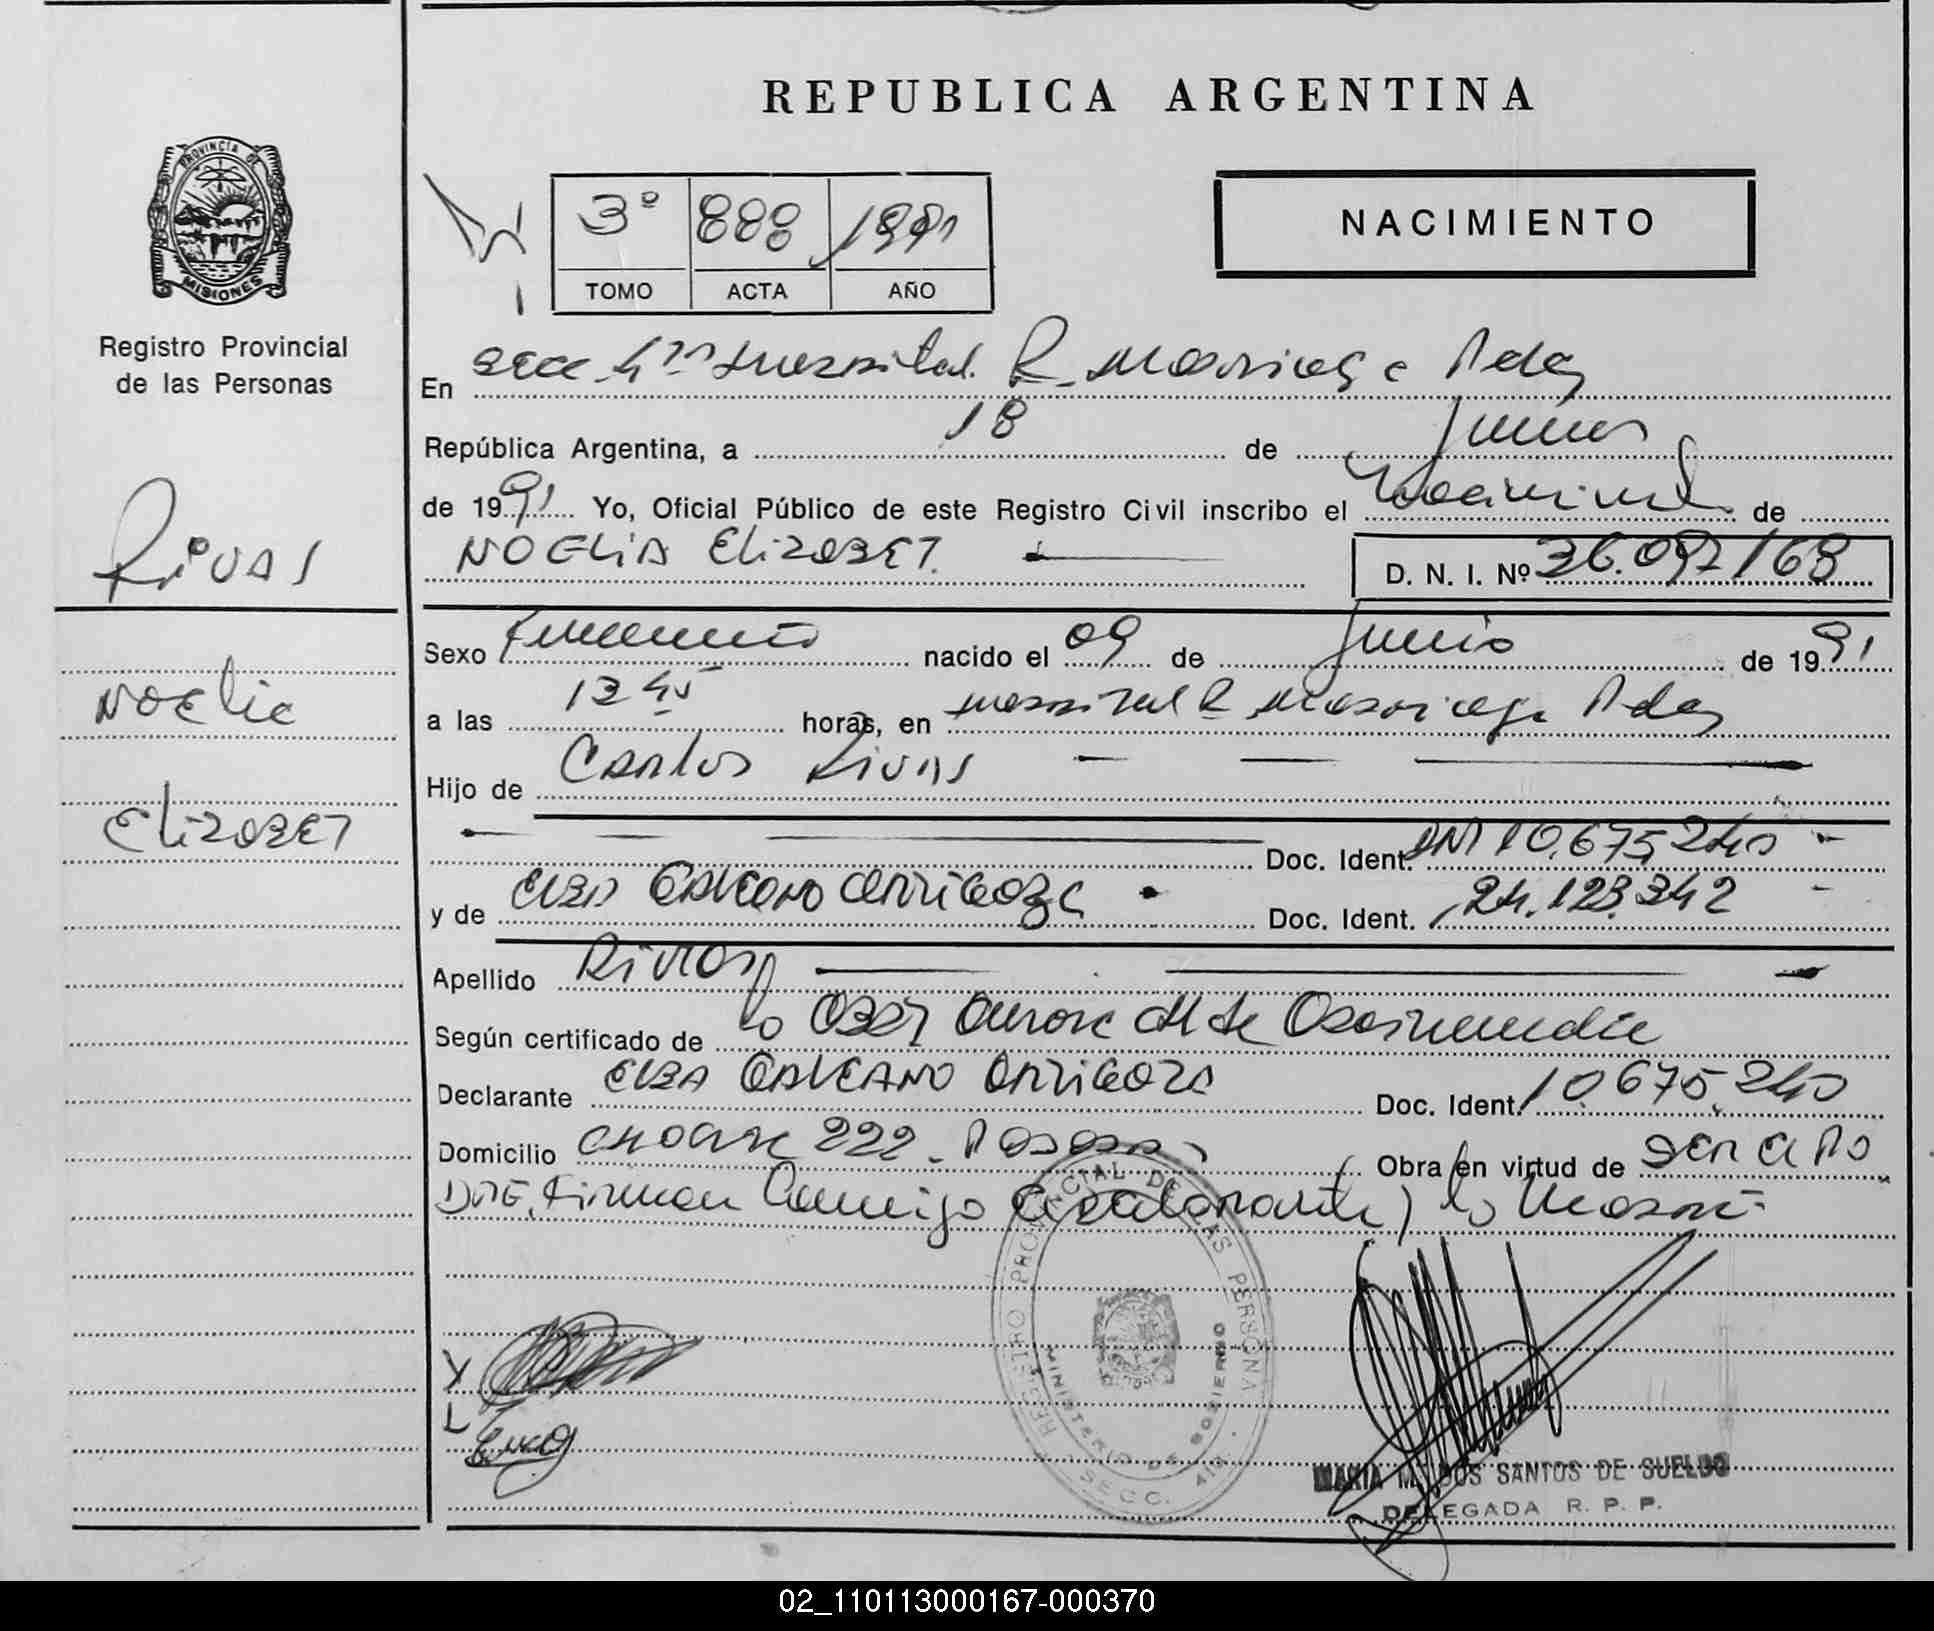 REPUBLICA ARGENTINA
PROVINCIA DE
MISIONES
Registro Provincial
de las Personas
3º 888 1991
TOMO ACTA AÑO
NACIMIENTO
En Secc 4ta Hospital R. Madariaga Pdas
República Argentina, a 18 de Junio
de 1991 Yo, Oficial Público de este Registro Civil inscribo el Nacimiento de
NOELIA Elizabet. D. N. I. Nº 36.092168
Rivas
Noelia
Elizabet
Sexo Femenino nacido el 09 de Junio de 1991
a las 13 45 horas, en Hospital R. Madariaga Pdas
Hijo de Carlos Rivas
Doc. Ident. DNI 10.675.240
y de Elba Galeano Arrigoza Doc. Ident. 24.123.342
Apellido Rivas
Según certificado de la Obst
Declarante Elba GALEANO Arrigoza Doc. Ident. 10.675.240
Domicilio 222 - Posadas Obra en virtud de ser el
Firman Conmigo el declarante y la Madre
REGISTRO PROVINCIAL DE LAS PERSONAS
MINISTERIO DE GOBIERNO
SECC. 4ta.
MARIA M. DOS SANTOS DE SUELDO
DELEGADA R. P. P.
02_110113000167-000370